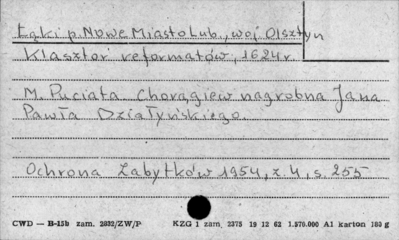 Łąki p. Nowe Miasto Lub., woj Olsztyn
Klasztor reformatów, 1624 r.
M. Puciata Chorągiew nagrobna Jana
Pawła Działyńskiego.
Ochrona Zabytków 1954, z. 4, s. 255
CWD — B-15b zam. 2832/ZW/P KZG 1 zam. 2375 19 12 62 1.570.000 A1 karton 180 g